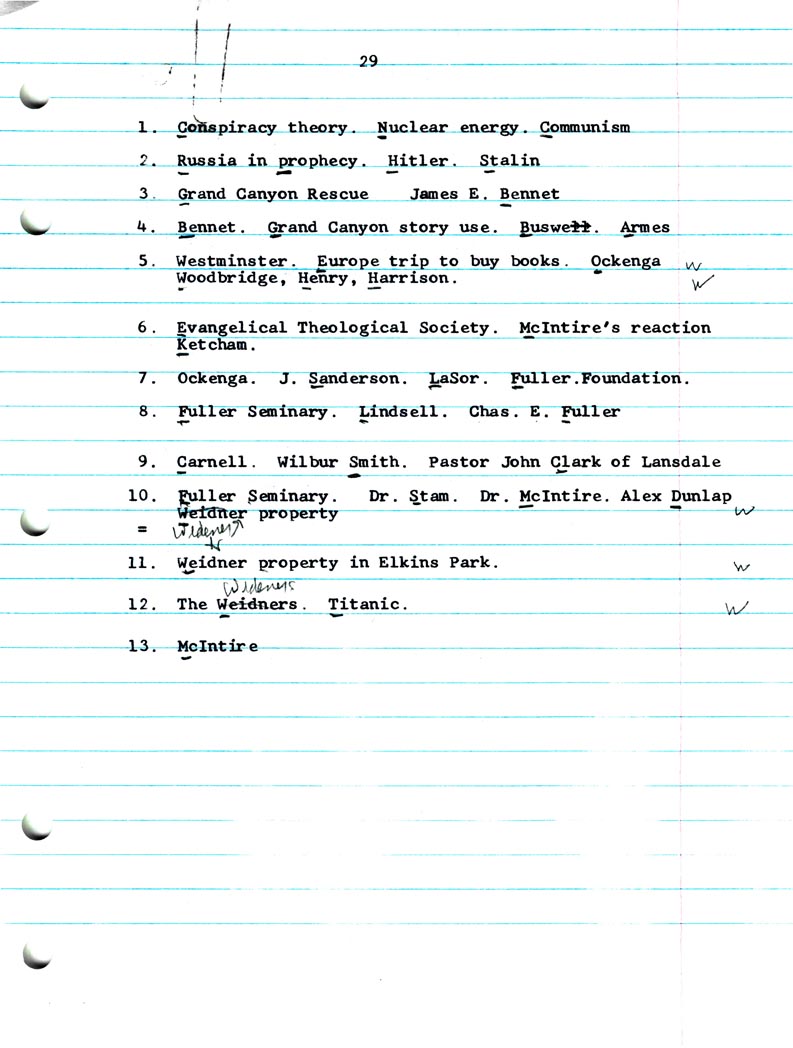 29
1. Conspiracy theory. Nuclear energy. Communism
2. Russia in prophecy. Hitler. Stalin
3. Grand Canyon Rescue James E. Bennet
4. Bennet. Grand Canyon story use. Buswell. Armes
5. Westminster. Europe trip to buy books. Ockenga W
Woodbridge, Henry, Harrison. W
6. Evangelical Theological Society. McIntire's reaction
Ketcham.
7. Ockenga. J. Sanderson. LaSor. Fuller.Foundation.
8. Fuller Seminary. Lindsell. Chas. E. Fuller
9. Carnell. Wilbur Smith. Pastor John Clark of Lansdale
10. Fuller Seminary. Dr. Stam. Dr. McIntire. Alex Dunlap
Weidner property W
= Widener
11. Weidner property in Elkins Park. W
Wideners
12. The Weidners. Titanic. W
13. McIntire